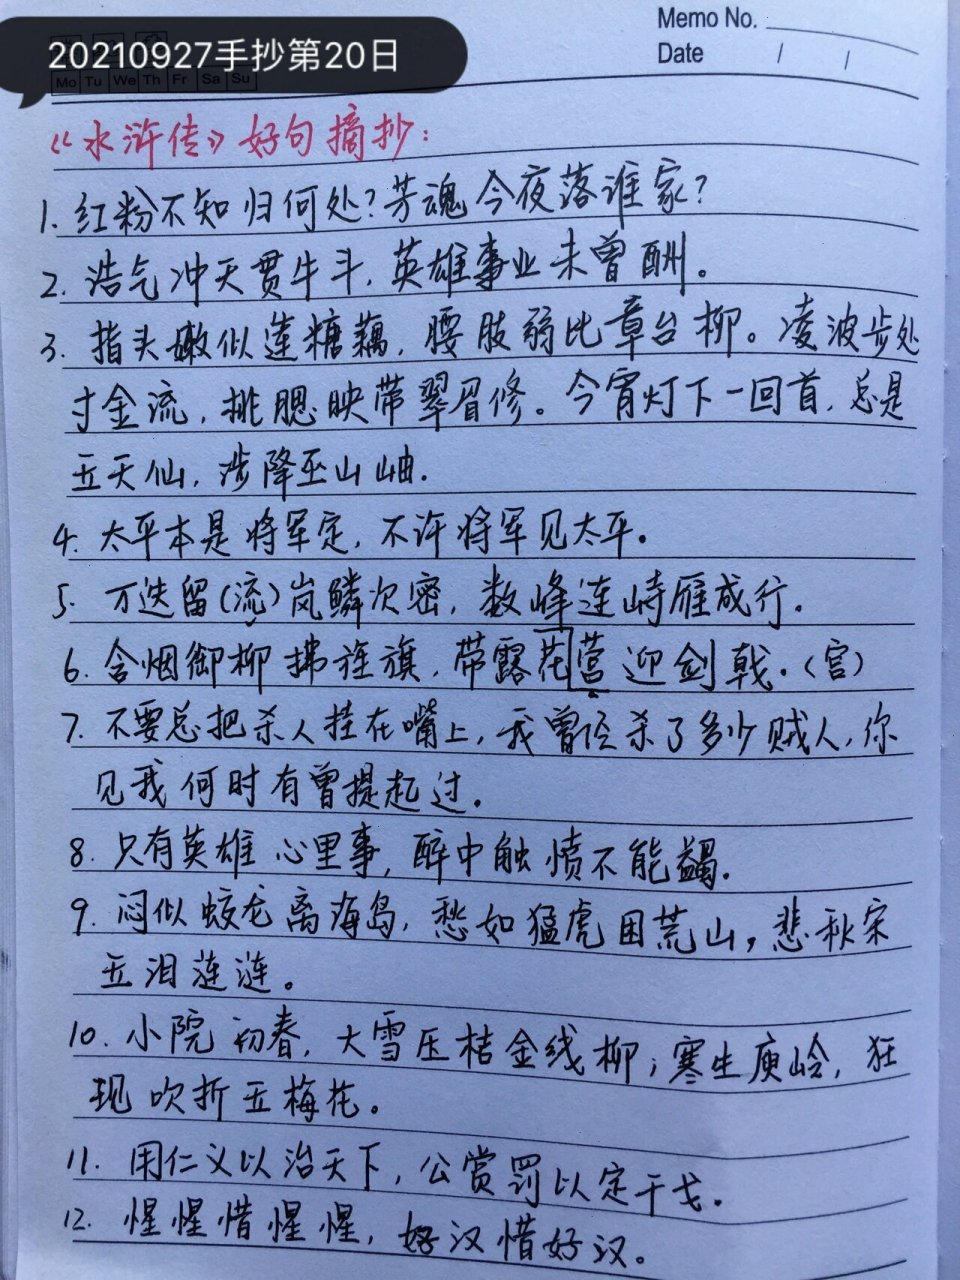 20210927手抄第20日
Memo No.
Date / /
Mo Tu We Th Fr Sa Su
《水浒传》好句摘抄：
1. 红粉不知归何处？芳魂今夜落谁家？
2. 浩气冲天贯牛斗，英雄事业未曾酬。
3. 指头嫩似莲糖藕，腰肢弱比章台柳。凌波步处
寸金流，桃腮映带翠眉修。今宵灯下一回首，总是
玉天仙，涉降巫山岫。
4. 太平本是将军定，不许将军见太平。
5. 万迭留(流)岚鳞次密，数峰连峙雁成行。
6. 含烟御柳拂旌旗，带露花营迎剑戟。(宫)
7. 不要总把杀人挂在嘴上，我曾经杀了多少贼人，你
见我何时有曾提起过。
8. 只有英雄心里事，醉中触愤不能蠲。
9. 闷似蛟龙离海岛，愁如猛虎困荒山，悲秋宋
玉泪涟涟。
10. 小院初春，大雪压桔金线柳；寒生庾岭，狂
现吹折玉梅花。
11. 用仁义以治天下，公赏罚以定干戈。
12. 惺惺惜惺惺，好汉惜好汉。